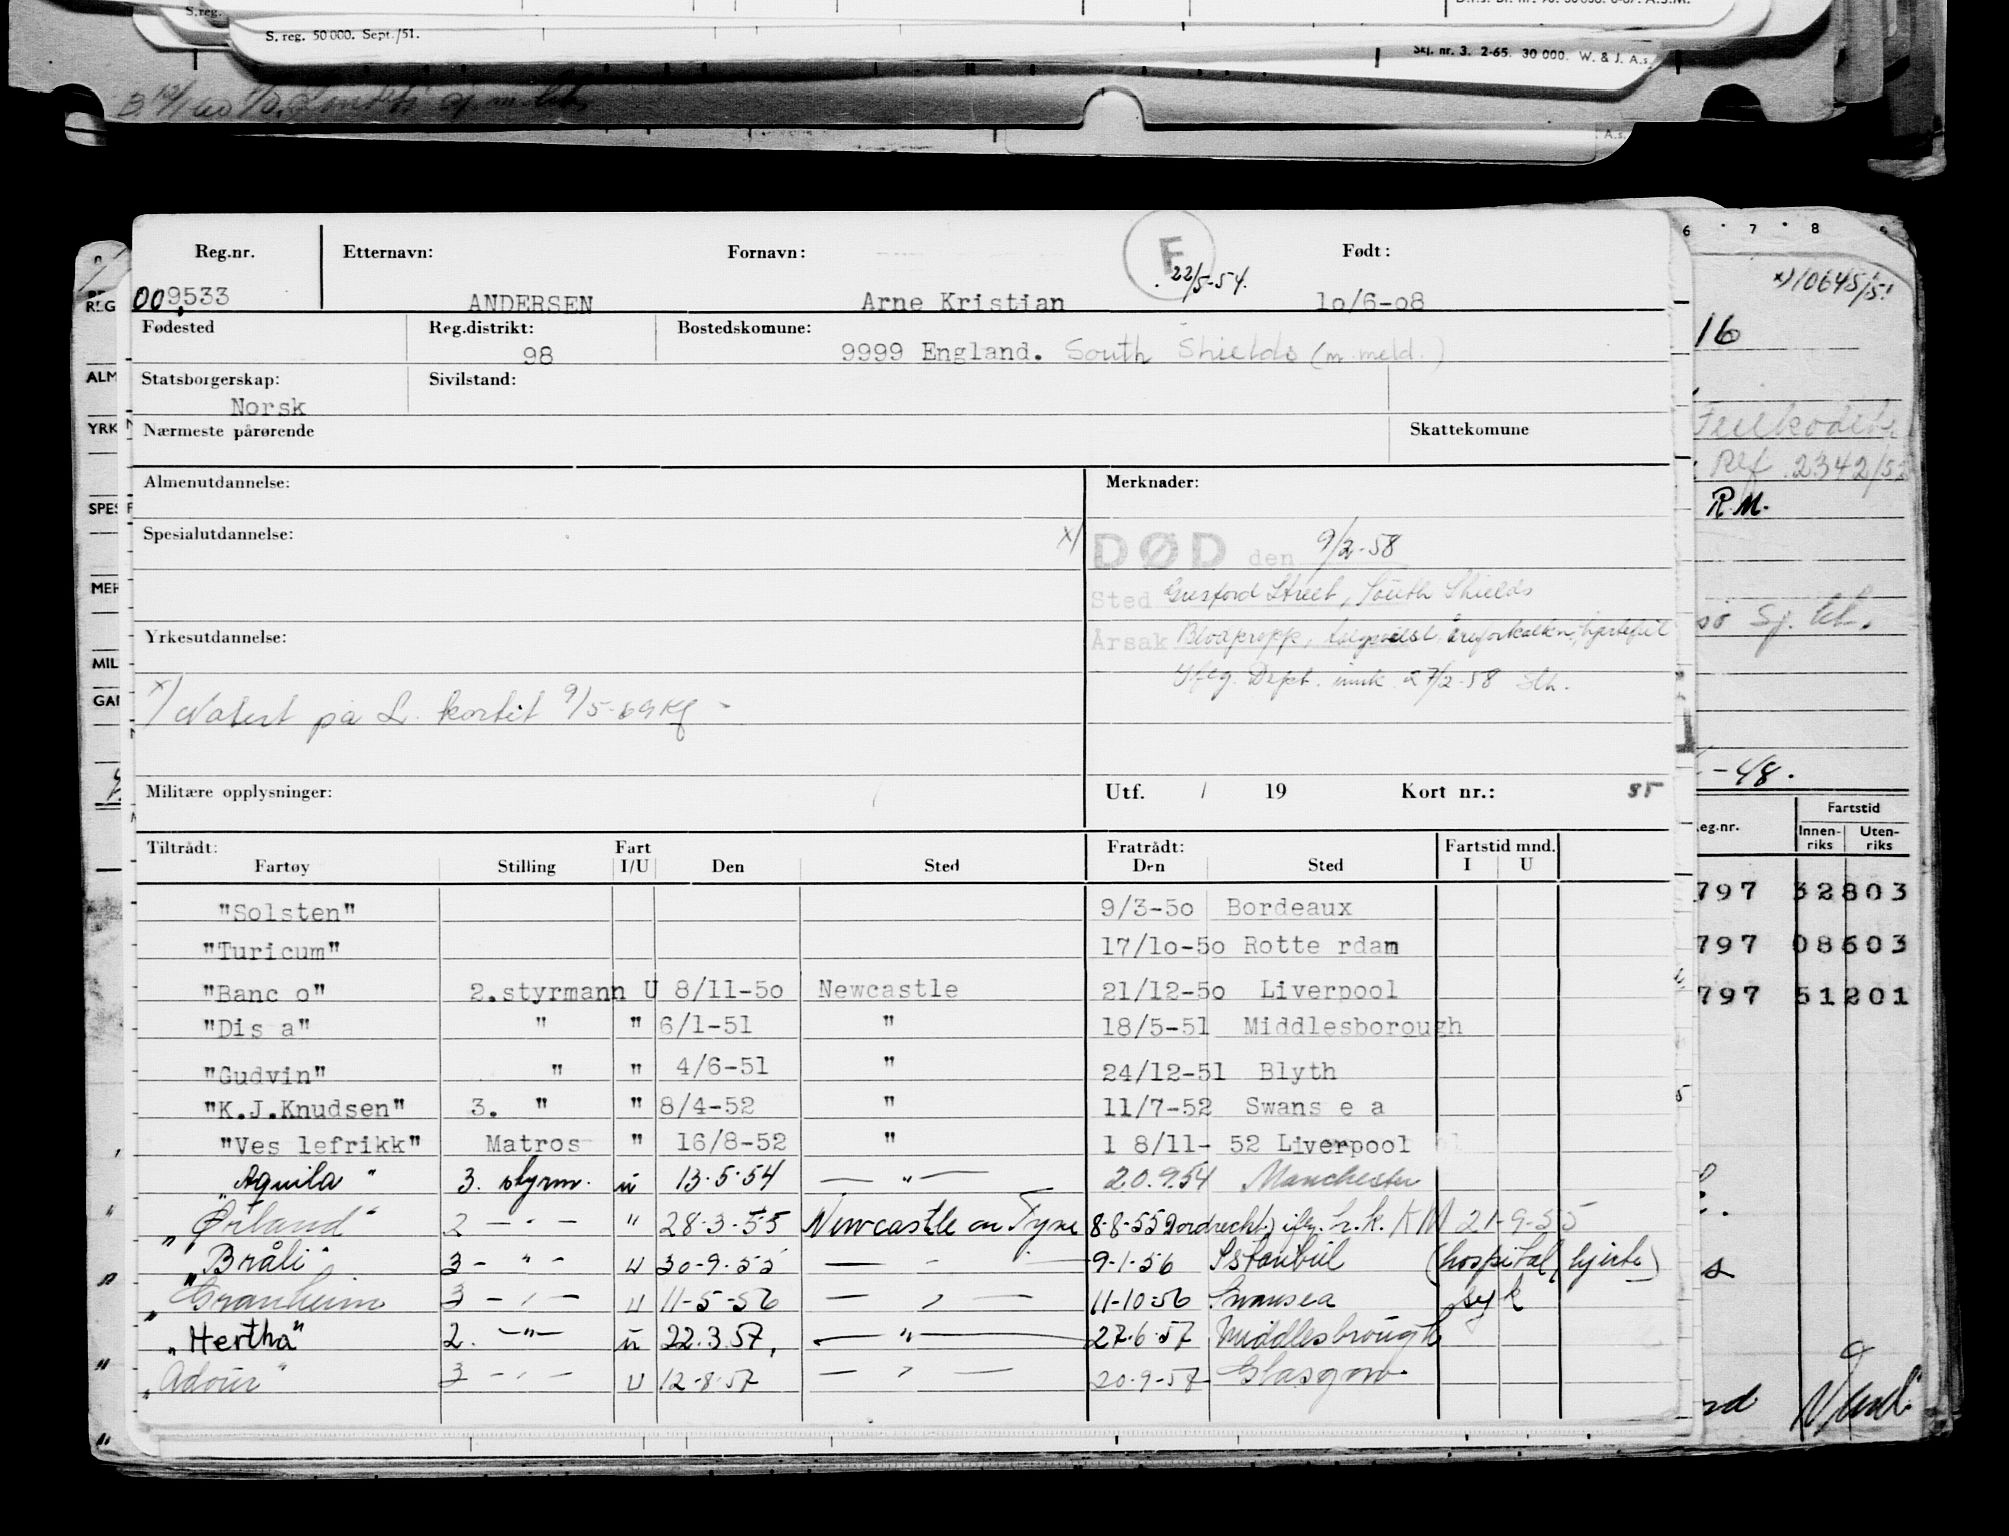 S. reg.
S. reg. 50 000. Sept./51.
Skj. nr. 3. 2-65. 30 000. W. & J. A.s.
Reg.nr. Etternavn: Fornavn: F Født:
22/5-54.
009533 ANDERSEN Arne Kristian 10/6-08
Fødested Reg.distrikt: Bostedskomune:
98 9999 England. South Shields (m. meld.)
Statsborgerskap: Sivilstand:
Norsk
Nærmeste pårørende Skattekomune
Almenutdannelse: Merknader:
Spesialutdannelse: x/ DØD den 9/2-58
Sted Street, South Shields
Yrkesutdannelse: Årsak Blodpropp, åreforkalkn., hjertefeil
Ifølg. Dept. innk. 27/2-58
x/ Notert på L. kortet 9/5-69
Militære opplysninger: Utf. / 19 Kort nr.:
Tiltrådt: Fart Fratrådt: Fartstid mnd.
Fartøy Stilling I/U Den Sted Den Sted I U
"Solsten" 9/3-50 Bordeaux
"Turicum" 17/10-50 Rotte rdam
"Banc o" 2.styrmann U 8/11-50 Newcastle 21/12-50 Liverpool
"Dis a" " " 6/1-51 " 18/5-51 Middlesborough
"Gudvin" " " 4/6-51 " 24/12-51 Blyth
"K.J.Knudsen" 3. " " 8/4-52 " 11/7-52 Swans e a
"Ves lefrikk" Matros " 16/8-52 " 1 8/11- 52 Liverpool
"Aquila" 3. styrm. u 13.5.54 — " — 20.9.54 Manchester
"Ørland" 2 — " — " 28-3-55 Newcastle on Tyne 8-8-55 Dordrecht) iflg. h.k. KM 21-9-55
"Bråli" 3 - " - U 30-9-55 — " — 9-1-56 Istanbul (hospital, hjerte)
"Granheim" 3 - " - U 11-5-56 — " — 11-10-56 Swansea syk
"Hertha" 2. — " — u 22.3.57. — " — 27.6.57 Middlesbrough
"Adour" 3 - " - U 12-8-57 — " — 20-9-57 Glasgow
6 7 8
x) 10645/51
16
Feilkodet
Ref. 2342/52
R.M.
-48.
Fartstid
eg.nr. Innen-riks Uten-riks
797 32803
797 08603
797 51201
REG
ALM
YRK
SPES
MER
MIL
GAI